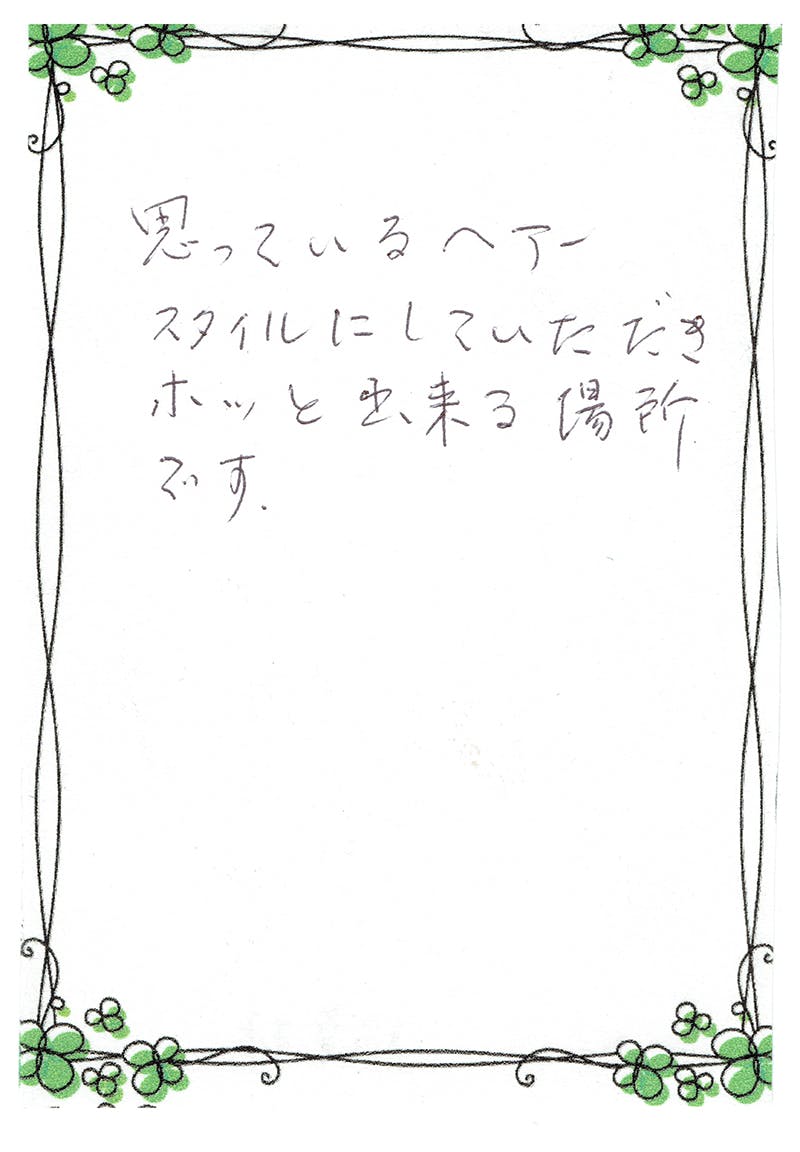 思っているヘアー
スタイルにしていただき
ホッと出来る場所
です.